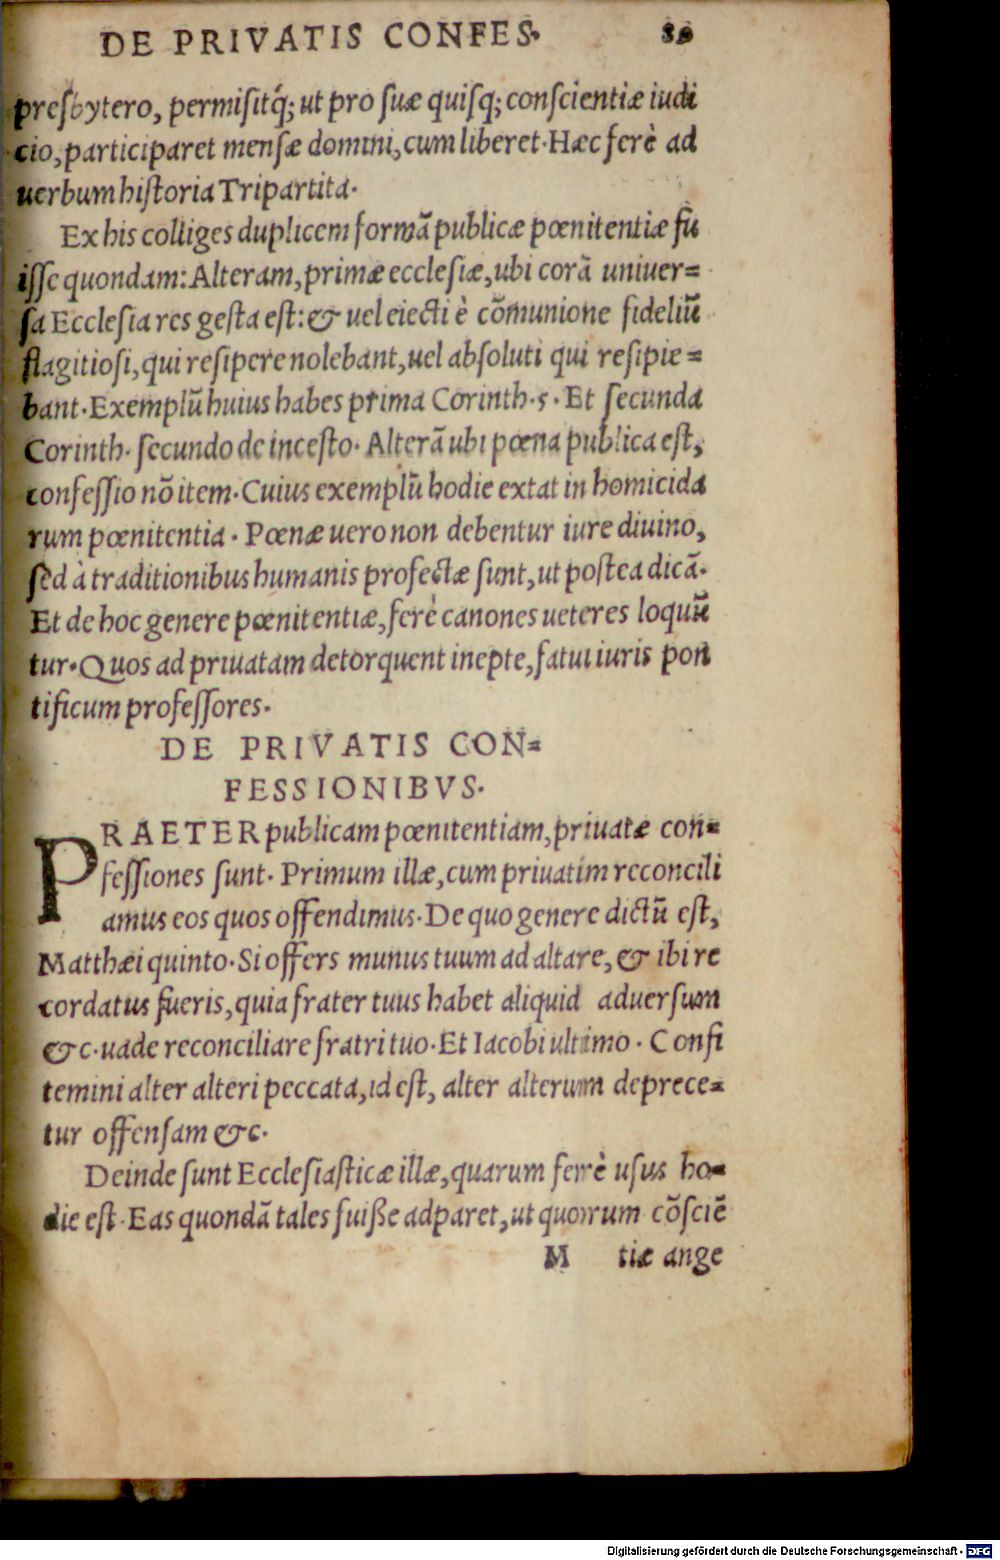 DE PRIVATIS CONFES.
presbytero, permisitq́; ut pro suæ quisq; conscientiæ iudi
cio, participaret mensæ domini, cum liberet. Hæc ferè ad
uerbum historia Tripartita.
Ex his colliges duplicem formā publicæ pœnitentiæ fu
isse quondam: Alteram, primæ ecclesiæ, ubi corā uniuer=
sa Ecclesia res gesta est: & uel eiecti è cōmunione fideliū
flagitiosi, qui resipere nolebant, uel absoluti qui resipie=
bant. Exemplū huius habes prima Corinth. 5. Et secunda
Corinth. secundo de incesto. Alterā ubi pœna publica est,
confessio nō item. Cuius exemplū hodie extat in homicida
rum pœnitentia. Pœnæ uero non debentur iure diuino,
sed à traditionibus humanis profectæ sunt, ut postea dicā.
Et de hoc genere pœnitentiæ, ferè canones ueteres loquū
tur. Quos ad priuatam detorquent inepte, fatui iuris pon
tificum professores.
DE PRIVATIS CON=
FESSIONIBVS.
PRAETER publicam pœnitentiam, priuatæ con=
fessiones sunt. Primum illæ, cum priuatim reconcili
amus eos quos offendimus. De quo genere dictū est,
Matthæi quinto. Si offers munus tuum ad altare, & ibi re
cordatus fueris, quia frater tuus habet aliquid aduersum
&c. uade reconciliare fratri tuo. Et Iacobi ultimo. Confi
temini alter alteri peccata, id est, alter alterum deprece=
tur offensam &c.
Deinde sunt Ecclesiasticæ illæ, quarum ferrè usus ho=
die est. Eas quondā tales fuiße adparet, ut quorum cōsciē
M tiæ ange
Digitalisierung gefördert durch die Deutsche Forschungsgemeinschaft - DFG